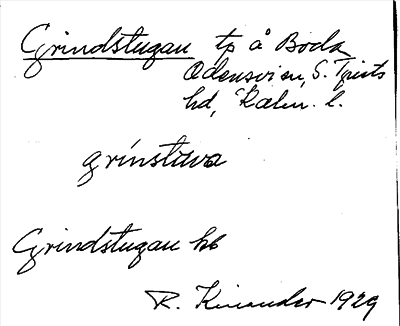 Grindstugan tp å Boda
Odensvi sn, S. Tjusts
hd, Kalm. l.
grínstúva
Grindstugan hb
R. Kinander 1929